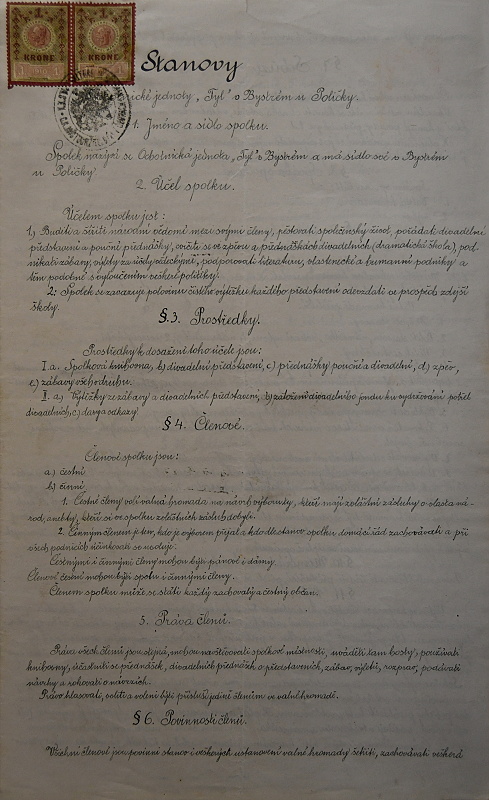 KRONE KRONE
Stanovy
jednoty „Tyl" v Bystrém u Poličky.
1. Jméno a sídlo spolku.
Spolek nazývá se Ochotnická jednota „Tyl" v Bystrém a má sídlo své v Bystrém
u Poličky
2. Účel spolku.
Účelem spolku jest:
1.) Buditi a šířiti národní vědomí mezi svými členy, pěstovati společenský život, pořádati divadelní
představení a poučné přednášky, cvičiti se ve zpěvu a přednáškách divadelních (dramatická škola), pod-
nikati zábavy, výlety za účely podporovati literaturu, vlastenecké a humanní podniky a
tém podobné s vyloučením veškeré politiky.
2: Spolek se zavazuje polovinu čistého výtěžku každého představení odevzdati ve prospěch zdejší
školy.
§.3. Prostředky.
Prostředky k dosažení toho účele jsou:
I. a. Spolková knihovna, b.) divadelní představení, c.) přednášky poučné a divadelní, d.) zpěv,
e.) zábavy všeho druhu.
II. a.) Výtěžky ze zábavy a divadelních představení, b.) založení divadelního fondu ku vydržování potřeb
divadelních, c.) dary a odkazy
§ 4. Členové.
Členové spolku jsou:
a.) čestní
b.) činní
1. Čestné členy volí valná hromada na návrh výboru ty, kteří mají zvláštní zásluhy o vlast a ná-
rod, anebky, kteří si ve spolku zvláštních zásluh dobyli.
2. Činným členem je ten, kdo je výborem přijat a kdo dle stanov spolku domácí řád zachovávati a při
všech podnicích účinkovati se uvoluje.
Čestnými i činnými členy mohou býti pánové i dámy.
Členové čestní mohou býti spolu i činnými členy.
Členem spolku může se státi každý zachovalý a čestný občan.
5. Práva členů.
Práva všech členů jsou stejná, mohou navštěvovati spolkové místnosti, uváděti tam hosty, používati
knihovny, účastniti se přednášek, divadelních představeních, zábav, výletů, rozprav, podávati
návrhy a rokovati o návrzích.
Právo hlasovati, voliti a voleni býti přísluší jediné členům ve valné hromadě.
§ 6. Povinnosti členů.
Všichni členové jsou povinni stanov i veškerých ustanovení valné hromady šetřiti, zachovávati veškerá